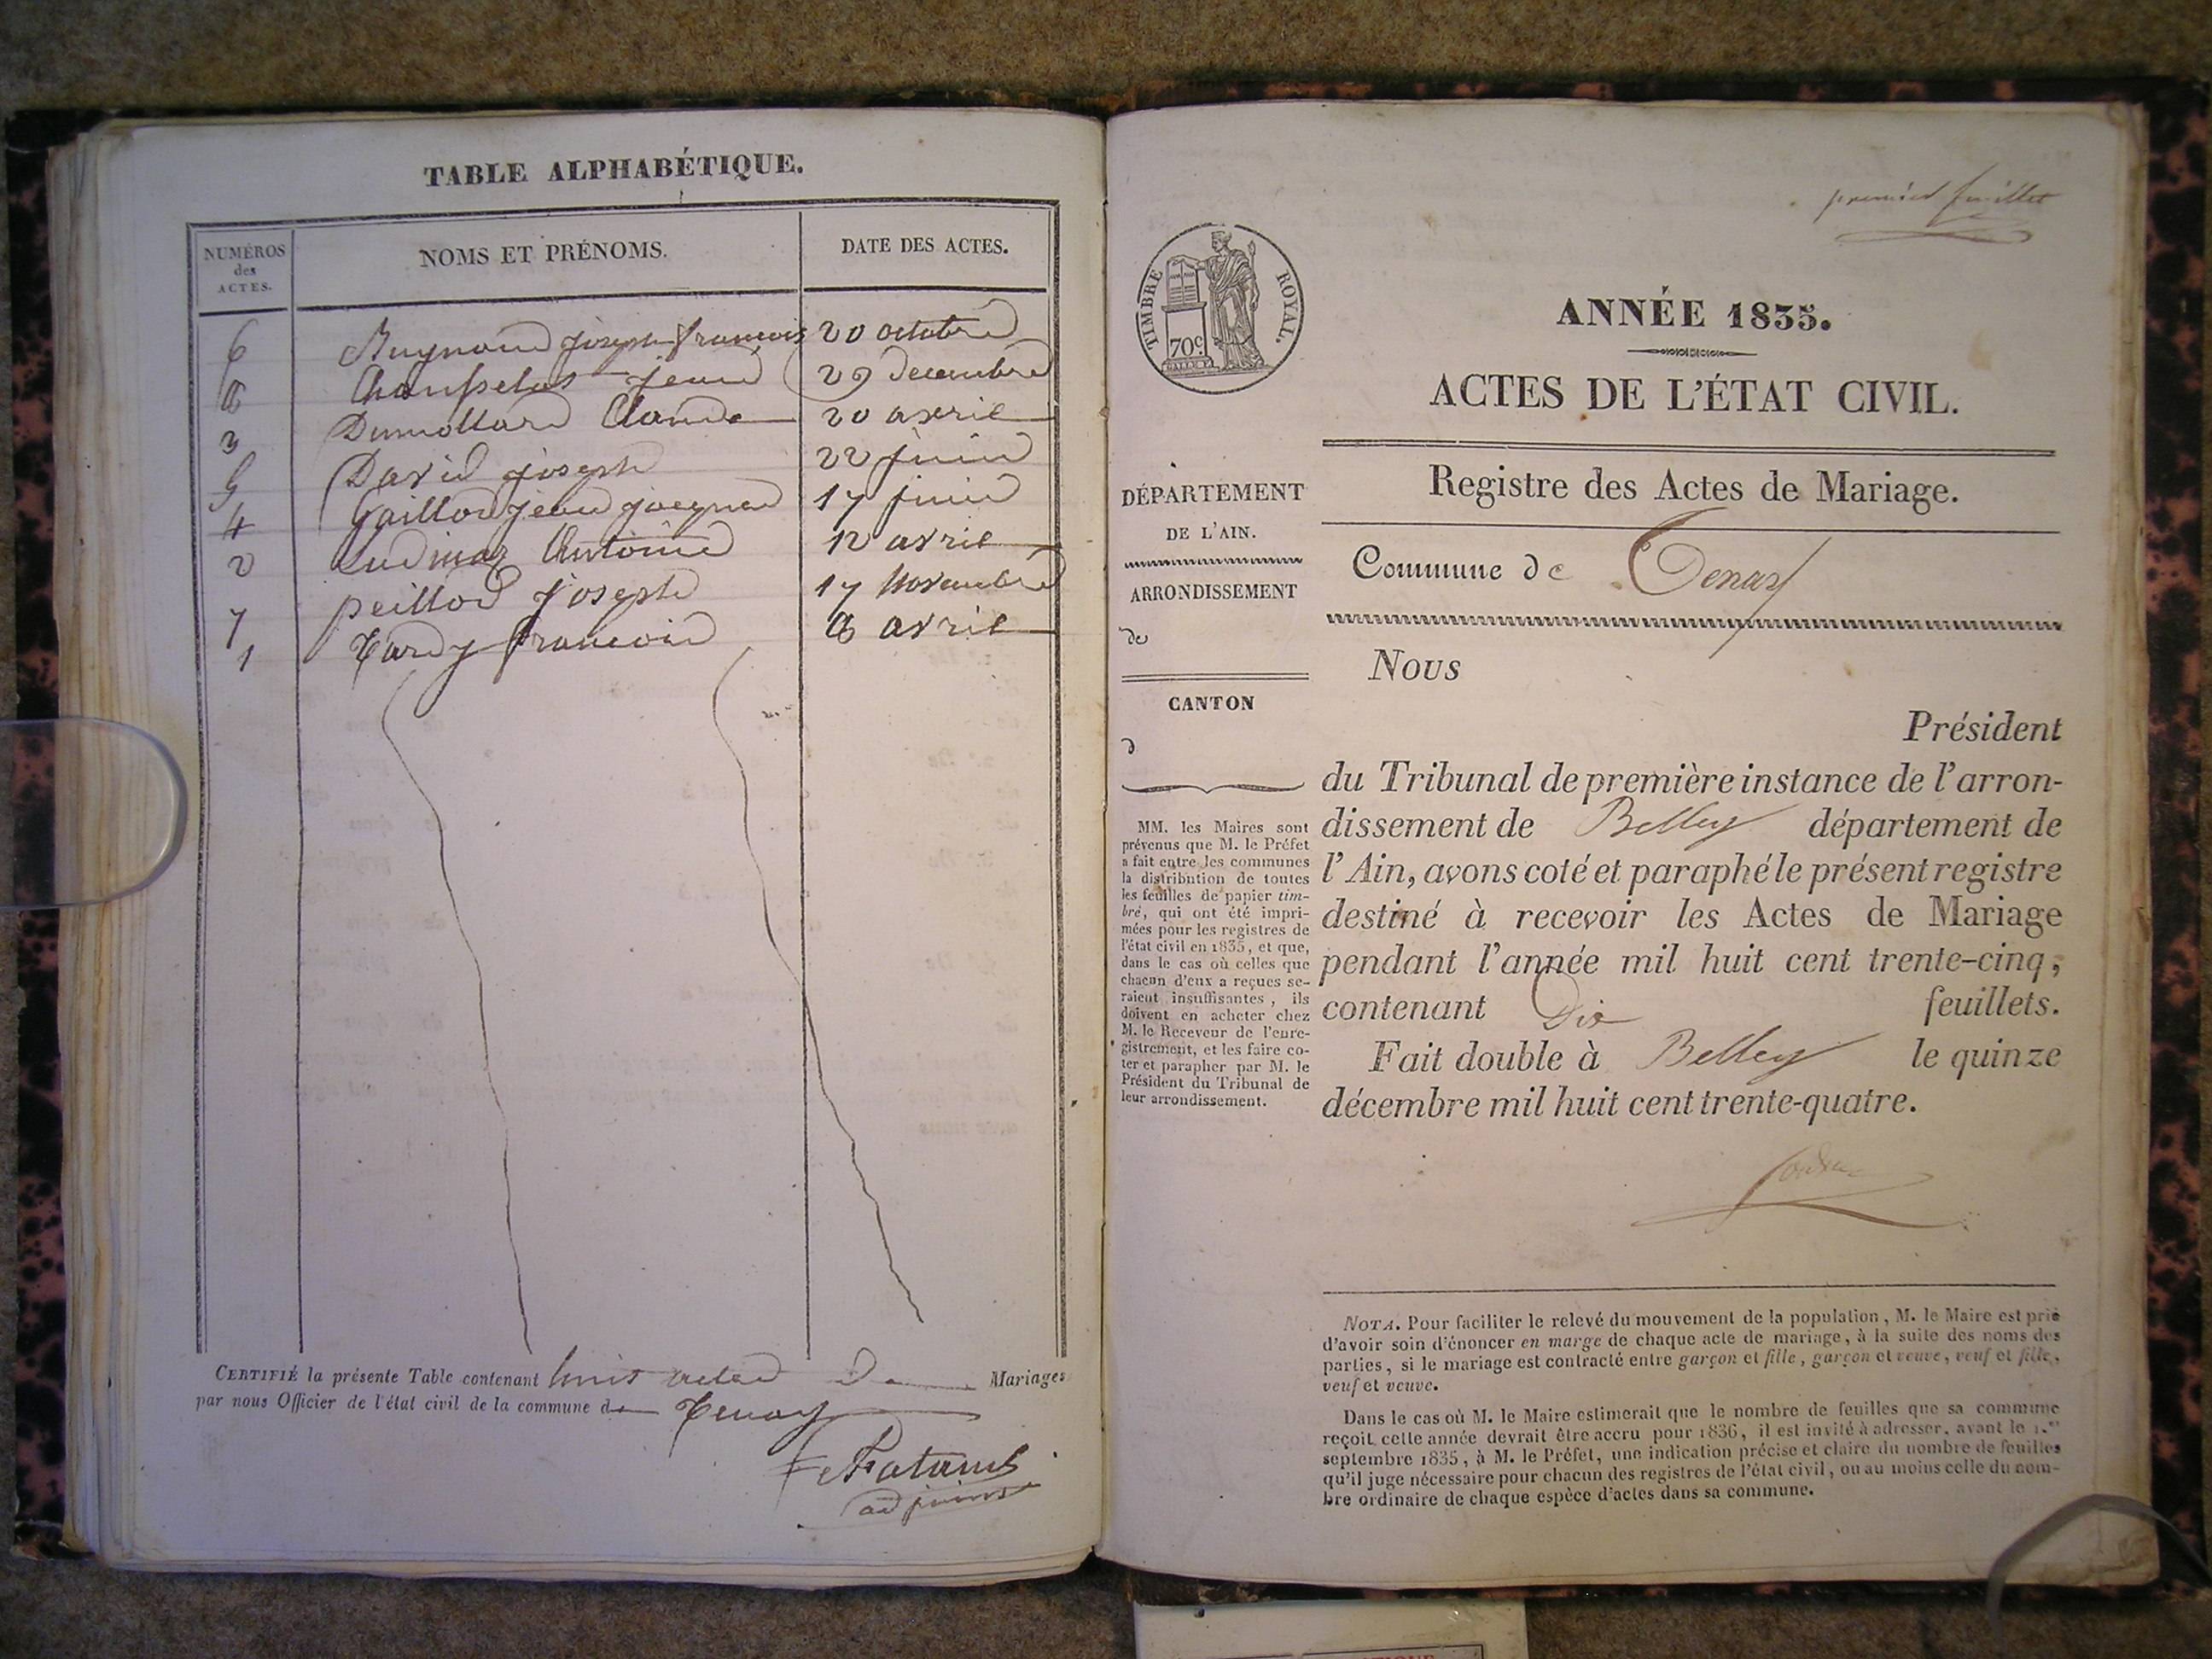 TABLE ALPHABÉTIQUE.
NUMÉROS des ACTES. NOMS ET PRÉNOMS. DATE DES ACTES.
6 joseph francois 20 octobre
8 jean 29 decembre
3 Dumollard Claude 20 avril
5 David joseph 22 juin
4 jean 17 juin
2 Antoine 12 avril
7 peillod joseph 17 novembre
1 Tardy francois 8 avril
CERTIFIÉ la présente Table contenant huit actes de Mariages
par nous Officier de l'état civil de la commune de Tenay
adjoint
premier feuillet
TIMBRE ROYAL.
70c.
ANNÉE 1835.
ACTES DE L'ÉTAT CIVIL.
Registre des Actes de Mariage.
DÉPARTEMENT
DE L'AIN.
ARRONDISSEMENT
de
CANTON
d
MM. les Maires sont
prévenus que M. le Préfet
a fait entre les communes
la distribution de toutes
les feuilles de papier tim-
bré, qui ont été impri-
mées pour les registres de
l'état civil en 1835, et que,
dans le cas où celles que
chacun d'eux a reçues se-
raient insuffisantes, ils
doivent en acheter chez
M. le Receveur de l'enre-
gistrement, et les faire co-
ter et parapher par M. le
Président du Tribunal de
leur arrondissement.
Commune de Tenay
Nous
Président
du Tribunal de première instance de l'arron-
dissement de Belley département de
l'Ain, avons coté et paraphé le présent registre
destiné à recevoir les Actes de Mariage
pendant l'année mil huit cent trente-cinq,
contenant Dix feuillets.
Fait double à Belley le quinze
décembre mil huit cent trente-quatre.
NOTA. Pour faciliter le relevé du mouvement de la population, M. le Maire est prié
d'avoir soin d'énoncer en marge de chaque acte de mariage, à la suite des noms des
parties, si le mariage est contracté entre garçon et fille, garçon et veuve, veuf et fille,
veuf et veuve.
Dans le cas où M. le Maire estimerait que le nombre de feuilles que sa commune
reçoit cette année devrait être accru pour 1836, il est invité à adresser, avant le 1.er
septembre 1835, à M. le Préfet, une indication précise et claire du nombre de feuilles
qu'il juge nécessaire pour chacun des registres de l'état civil, ou au moins celle du nom-
bre ordinaire de chaque espèce d'actes dans sa commune.